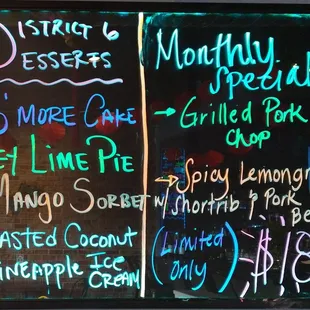 DISTRICT 6
DESSERTS
S'MORE CAKE
LIME PIE
MANGO SORBET
COCONUT
PINEAPPLE ICE
CREAM
Monthly
Spezial
→ Grilled Pork
Chop
→ Spicy Lemongr
w/ Shortrib & Pork
Be
(Limited
Only)
$18